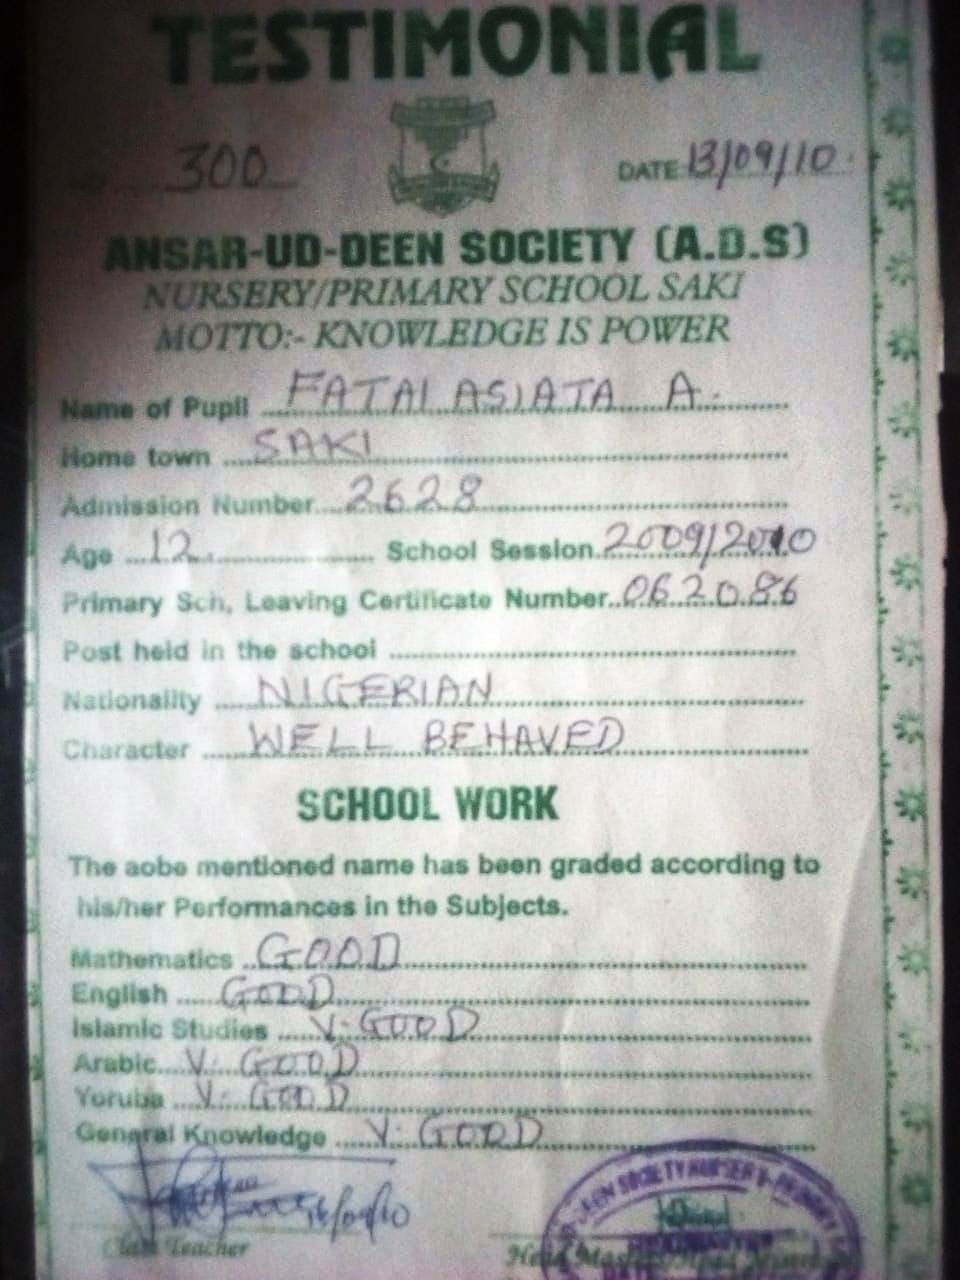 TESTIMONIAL
300
DATE: 13/09/10
ANSAR-UD-DEEN SOCIETY (A.D.S)
NURSERY/PRIMARY SCHOOL SAKI
MOTTO:- KNOWLEDGE IS POWER
Name of Pupil FATAI ASIATA A.
Home town SAKI
Admission Number 2628
Age 12 School Session 2009/2010
Primary Sch, Leaving Certificate Number 062086
Post held in the school
Nationality NIGERIAN
Character WELL BEHAVED
SCHOOL WORK
The aobe mentioned name has been graded according to
his/her Performances in the Subjects.
Mathematics GOOD
English GOOD
Islamic Studies V. GOOD
Arabic V. GOOD
Yoruba V. GOOD
General Knowledge V. GOOD
Class Teacher